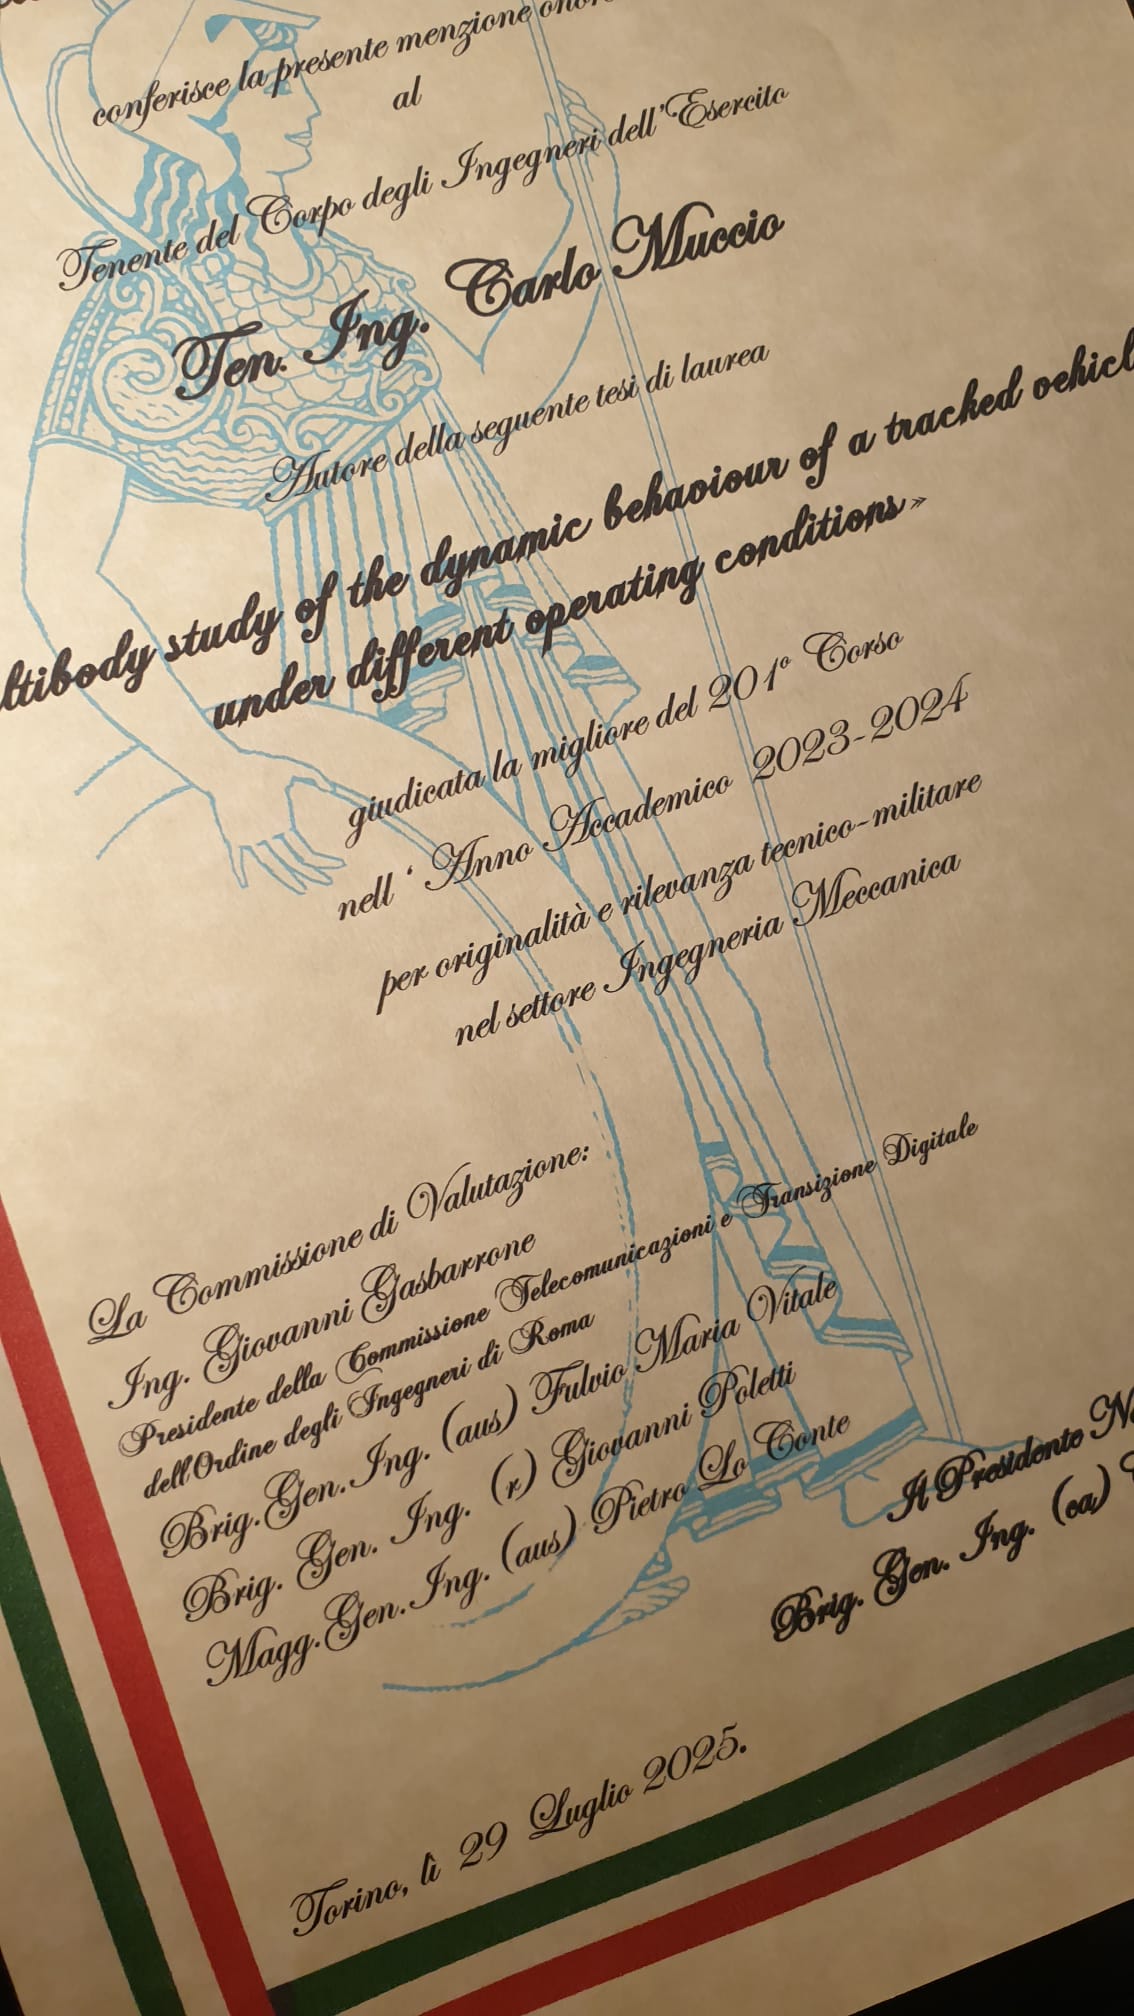 conferisce la presente menzione
al
Tenente del Corpo degli Ingegneri dell'Esercito
Ten. Ing. Carlo Muccio
Autore della seguente tesi di laurea
study of the dynamic behaviour of a tracked
under different operating conditions»
giudicata la migliore del 201° Corso
nell ' Anno Accademico 2023-2024
per originalità e rilevanza tecnico-militare
nel settore Ingegneria Meccanica
La Commissione di Valutazione:
Ing. Giovanni Gasbarrone
Presidente della Commissione Telecomunicazioni e Transizione Digitale
dell'Ordine degli Ingegneri di Roma
Brig.Gen.Ing. (aus) Fulvio Maria Vitale
Brig. Gen. Ing. (r) Giovanni Poletti
Magg.Gen.Ing. (aus) Pietro Lo Conte
Il Presidente
Brig. Gen. Ing. (ca)
Torino, lì 29 Luglio 2025.